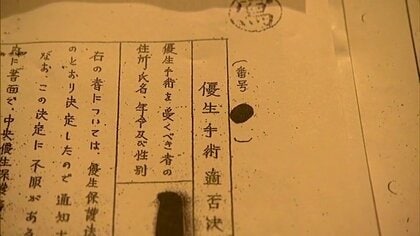 写
(番号 )
優生手術適否決
優生手術を受くべき者の
住所氏名、年令及び性別
右の者については、優生保護法
のとおり決定したので通知
なお、この決定に不服があ
に書面で、中央優生保護